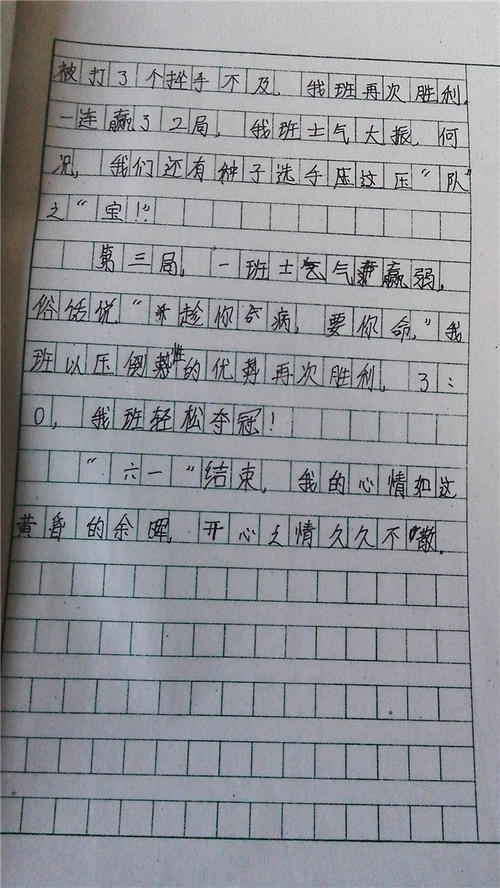 被打了个挫手不及，我班再次胜利，
一连赢了2局，我班士气大振，何
况，我们还有种子选手压这压“队”
之“宝！”
第三局，一班士气赢弱，
俗话说“趁你病，要你命，”我
班以压倒性的优势再次胜利，3：
0，我班轻松夺冠！
“六一”结束，我的心情如这
黄昏的余晖，开心之情久久不散．